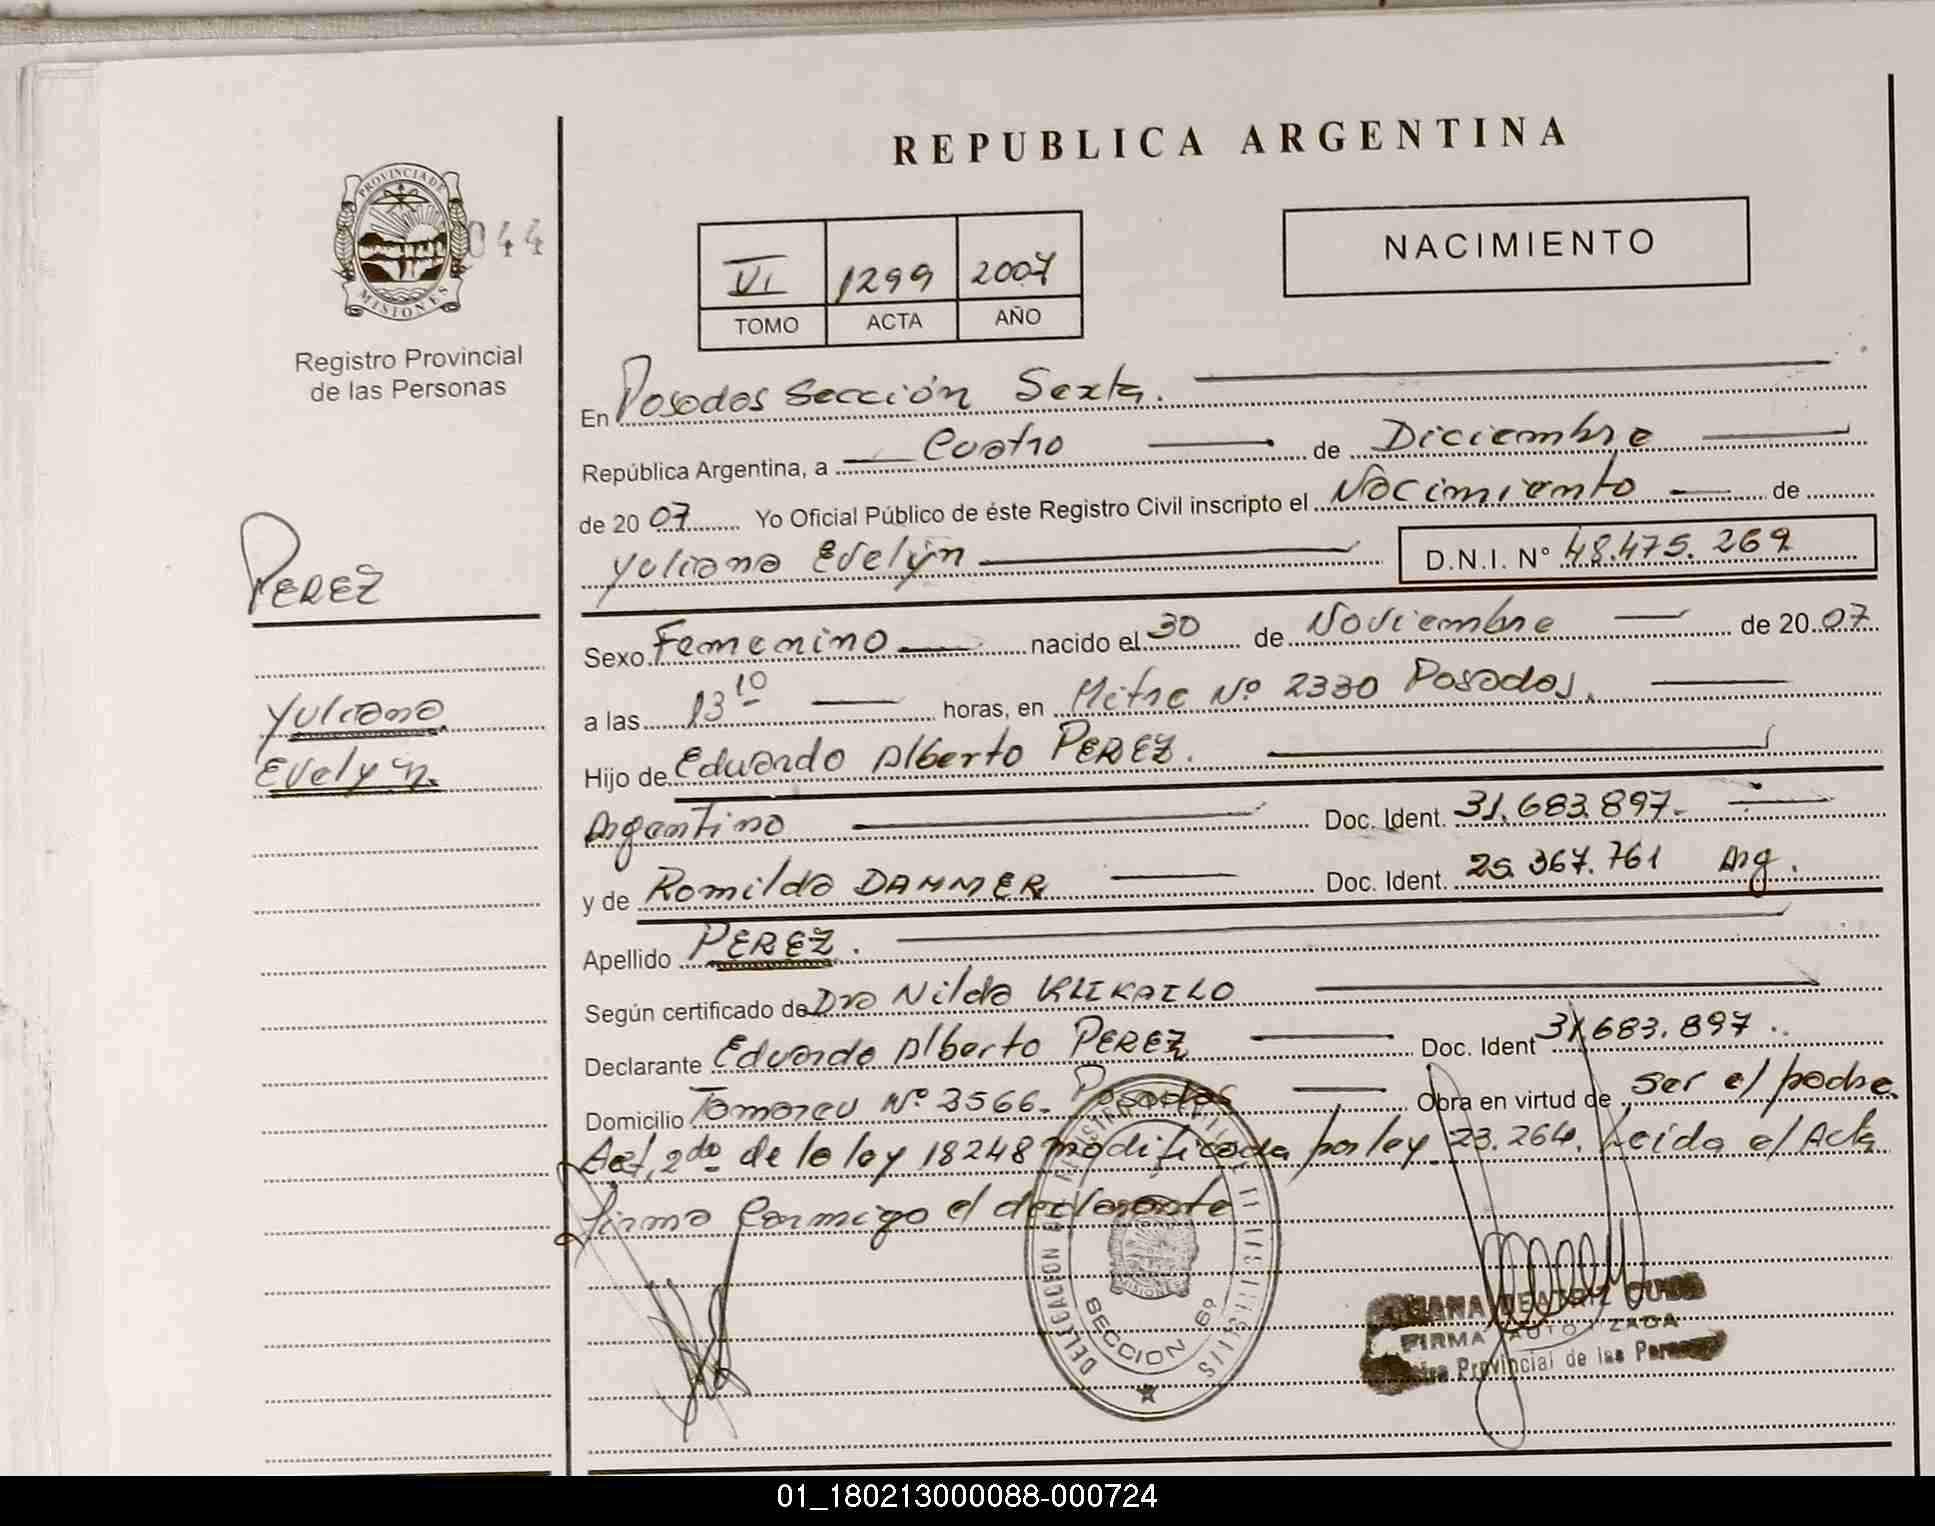 REPUBLICA ARGENTINA
PROVINCIA DE
MISIONES
044
Registro Provincial
de las Personas
VI 1299 2007
TOMO ACTA AÑO
NACIMIENTO
En Posadas Sección Sexta.
República Argentina, a Cuatro de Diciembre
de 20 07 Yo Oficial Público de éste Registro Civil inscripto el Nacimiento de
Yuliana Evelyn D.N.I. N° 48.475.269
PEREZ
Yuliana
Evelyn.
Sexo Femenino nacido el 30 de Noviembre de 20 07
a las 13 10 horas, en Mitre Nº 2330 Posadas.
Hijo de Eduardo Alberto PEREZ.
Argentino Doc. Ident. 31.683.897.
y de Romilda DAMMER Doc. Ident. 25.367.761 Arg.
Apellido PEREZ.
Según certificado de Dra Nilda
Declarante Eduardo Alberto PEREZ Doc. Ident 31.683.897
Domicilio Nº 3566. Posadas Obra en virtud de ser el padre.
Art. 2do de la ley 18248 modificada por ley 23.264. Leída el Acta
firma Conmigo el declarante
SECCION 6º
MISIONES
BEATRIZ
FIRMA AUTORIZADA
Provincial de las
01_180213000088-000724